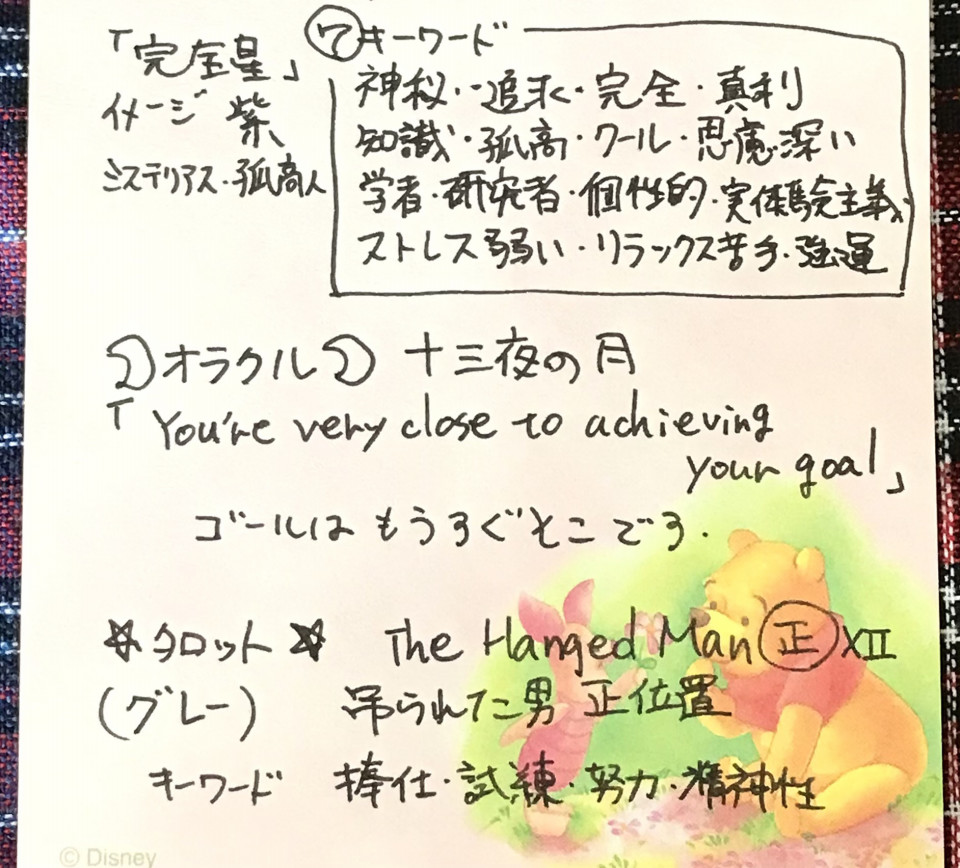 「完全星」
イメージ 紫
ミステリアス・孤高人
⑦キーワード
神秘・追求・完全・真利
知識・孤高・クール・思慮深い
学者・研究者・個性的・実体験主義
ストレス弱い・リラックス苦手・強運
☽オラクル☽ 十三夜の月
「You're very close to achieving
your goal」
ゴールはもうすぐそこです.
☆タロット☆ The Hanged Man ㊣ XII
(グレー) 吊られた男 正位置
キーワード 捧仕・試練・努力・精神性
© Disney